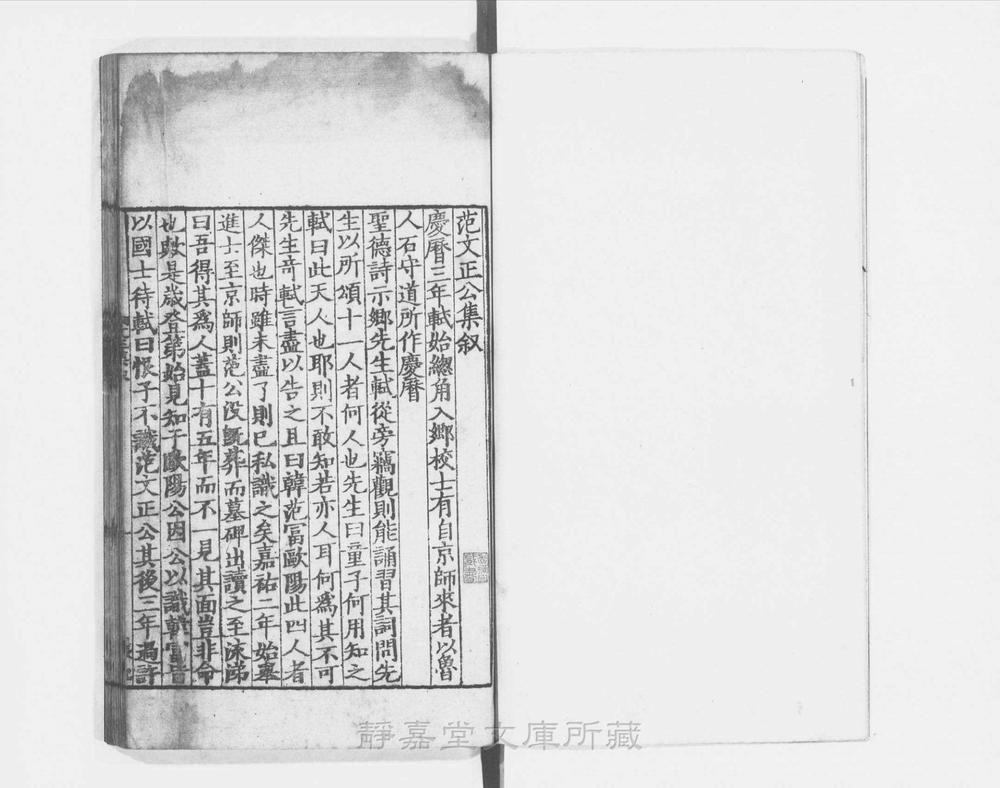 范文正公集叙
慶曆三年軾始緫角入郷校士有自京師來者以魯
人石守道所作慶曆
聖德詩示郷先生軾從旁竊觀則能誦習其詞問先
生以所頌十一人者何人也先生曰童子何用知之
軾曰此天人也耶則不敢知若亦人耳何爲其不可
先生竒軾言盡以告之且曰韓范冨歐陽此四人者
人傑也時雖未盡了則已私識之矣嘉祐二年始舉
進士至京師則范公没旣葬而墓碑出讀之至流涕
曰吾得其爲人蓋十有五年而不一見其面豈非命
也歟是歳登第始見知于歐陽公因公以識韓冨皆
以國士待軾曰恨子不識范文正公其後三年過許
靜嘉堂文庫所藏